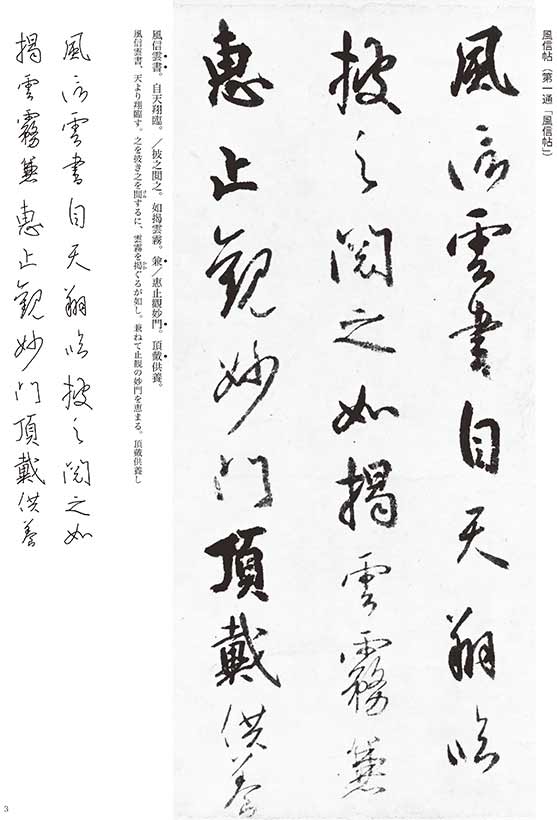 風信帖（第一通「風信帖」）
風信雲書自天翔臨
披之閲之如揭雲霧兼
惠止觀妙門頂戴供養
風信雲書。自天翔臨。／披之閲之。如揭雲霧。兼／惠止觀妙門。頂戴供養。
風信雲書、天より翔臨す。之を披き之を閲するに、雲霧を揭ぐるが如し。兼ねて止観の妙門を恵まる。頂戴供養し
風信雲書自天翔臨披之閲之如
揭雲霧兼惠止觀妙門頂戴供養
3